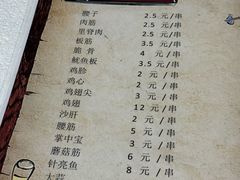 腰子 2.5 元/串
肉筋 2.5 元/串
里脊肉 2.5 元/串
板筋 3.5 元/串
脆骨 4 元/串
鱿鱼板 3.5 元/串
鸡胗 2 元/串
鸡心 2 元/串
鸡翅尖 3 元/串
鸡翅 12 元/串
沙肝 2 元/串
腰筋 5 元/串
掌中宝 6 元/串
蘑菇筋 8 元/串
针亮鱼
大蒜